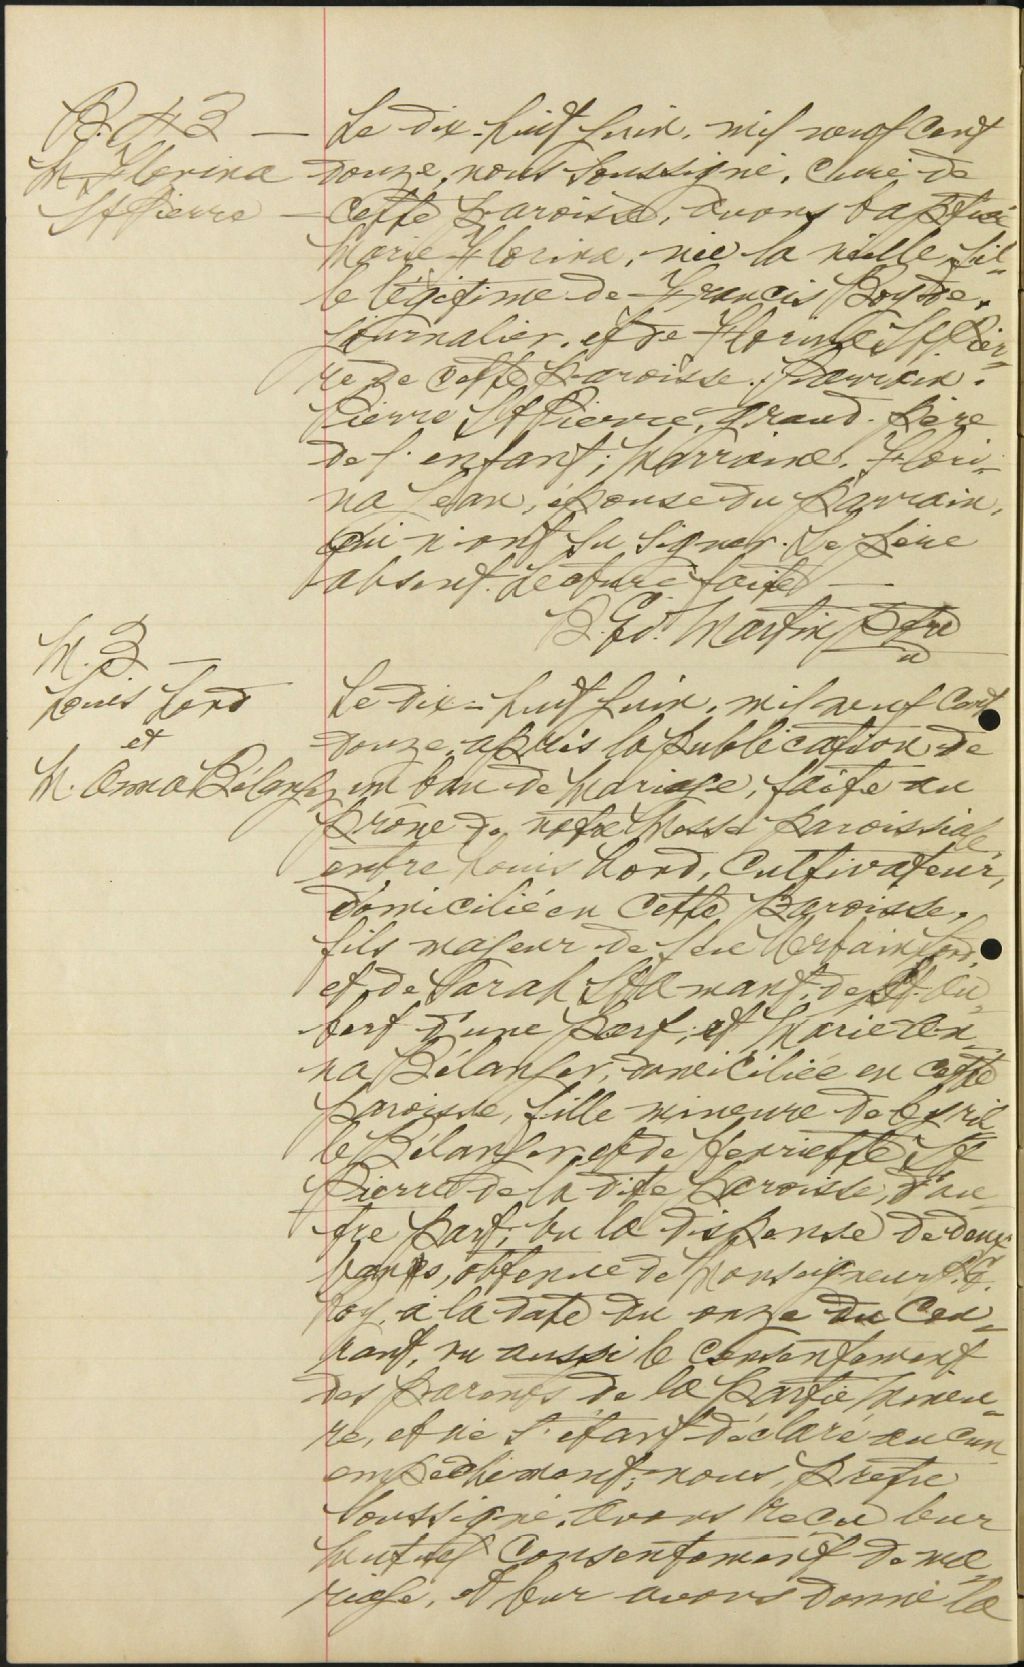 B. 43 —
M. Florina
St Pierre —
Le dix-huit juin, mil neuf cent
douze, nous soussigné, curé de
cette paroisse, avons baptisé
Marie Florina, née la veille, fil-
le légitime de Francis
journalier, et de St. Pier-
re de cette paroisse. Parrain,
Pierre St Pierre, grand-père
de l'enfant; Marraine, Flori-
na Jean, épouse du parrain,
qui n'ont su signer. Le père
absent. Lecture faite —
Martin Ptre
M. 3 —
Louis Lord
et
M. Anna Bélanger
Le dix-huit juin, mil neuf cent
douze, après la publication de
un ban de mariage, faite au
prône de notre Messe paroissiale
entre Louis Lord, cultivateur,
domicilié en cette paroisse,
fils majeur de feu Lord,
et de Sarah St Amant, de St. Au-
bert d'une part; et Marie An-
na Bélanger, domiciliée en cette
paroisse, fille mineure de Cyril-
le Bélanger, et de Henriette St
Pierre de la dite paroisse, d'au-
tre part; vu la dispense de deux
bancs, obtenue de Monseigneur
Roy, à la date du onze du cou-
rant, vu aussi le consentement
des parents de la partie mineu-
re, et ne s'étant déclaré aucun
empêchement; nous, prêtre
soussigné, avons reçu leur
mutuel consentement de ma-
riage, et leur avons donné la